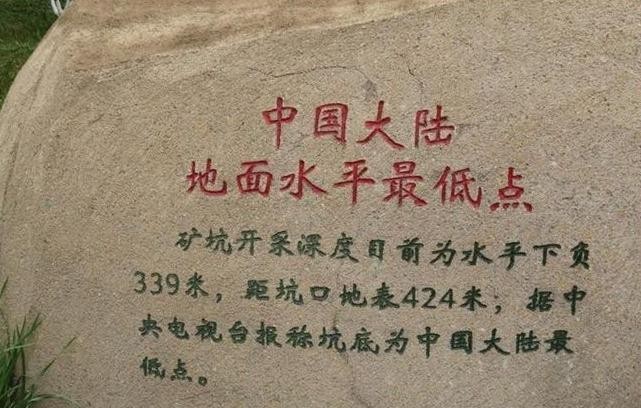 中国大陆
地面水平最低点
矿坑开采深度目前为水平下负
339米，距坑口地表424米；据中
央电视台报称坑底为中国大陆最
低点。